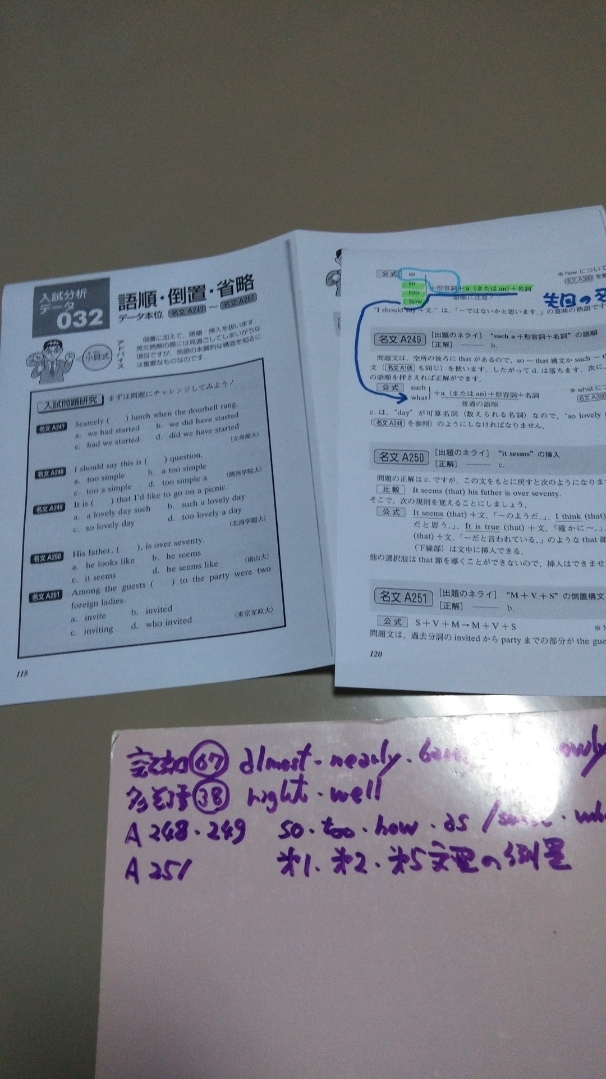 入試分析
データ
032
語順・倒置・省略
データ本位 名文A247 ― 名文A251
アドバイス
倒置に加えて、語順・挿入を扱います。
英文読解の際には見過ごしてしまいがちな
項目ですが、英語の本質的な構造を知るに
は重要なものなのです。
入試問題研究 まずは問題にチャレンジしてみよう！
名文A247 Scarcely ( ) lunch when the doorbell rang.
a. we had started b. we did have started
c. had we started d. did we have started
（立命館大）
名文A248 I should say this is ( ) question.
a. too simple b. a too simple
c. too a simple d. too simple a （関西学院大）
名文A249 It is ( ) that I'd like to go on a picnic.
a. a lovely day such b. such a lovely day
c. so lovely day d. too lovely a day
（北海学園大）
名文A250 His father, ( ), is over seventy.
a. he looks like b. he seems
c. it seems d. he seems like （南山大）
名文A251 Among the guests ( ) to the party were two
foreign ladies.
a. invite b. invited
c. inviting d. who invited （東京家政大）
118
公式 as
so
too
how
+形容詞+a（または an）+名詞
語順に注意！
※how につい
先日の
"I should say+文" は、「～ではないかと思います。」の意味の熟語です
名文A249 [出題のネライ] "such a+形容詞+名詞" の語順
[正解] ―― b.
問題文は、空所の後ろに that があるので、so ～ that 構文か such ～
を使います。したがって d. は落ちます。次に
の語順を押さえれば正解がでます。
公式 such
what
+a（または an）+形容詞+名詞
普通の語順
※what に
c. は、"day" が可算名詞（数えられる名詞）なので、"so lovely
を参照）のようにしなければなりません。
名文A250 [出題のネライ] "it seems" の挿入
[正解] ―― c.
問題の正解は c. ですが、この文をもとに戻すと次のようになりま
比較 It seems (that) his father is over seventy.
そこで、次の規則を覚えることにしましょう。
公式 It seems (that)+文、「～のようだ。」、I think (that)
だと思う。」、It is true (that)+文、「確かに～。」
(that)+文、「～だと言われている。」のような that 節
（下線部）は文中に挿入できる。
他の選択肢は that 節を導くことができないので、挿入はできませ
名文A251 [出題のネライ] "M+V+S" の倒置構文
[正解] ―― b.
公式 S+V+M→M+V+S
問題文は、過去分詞の invited から party までの部分が the gue
120
認知67 almost・nearly・
多義語38 right・well
A 248・249 so・too・how・as /
A 251 オ1.オ2.オ5文型の倒置